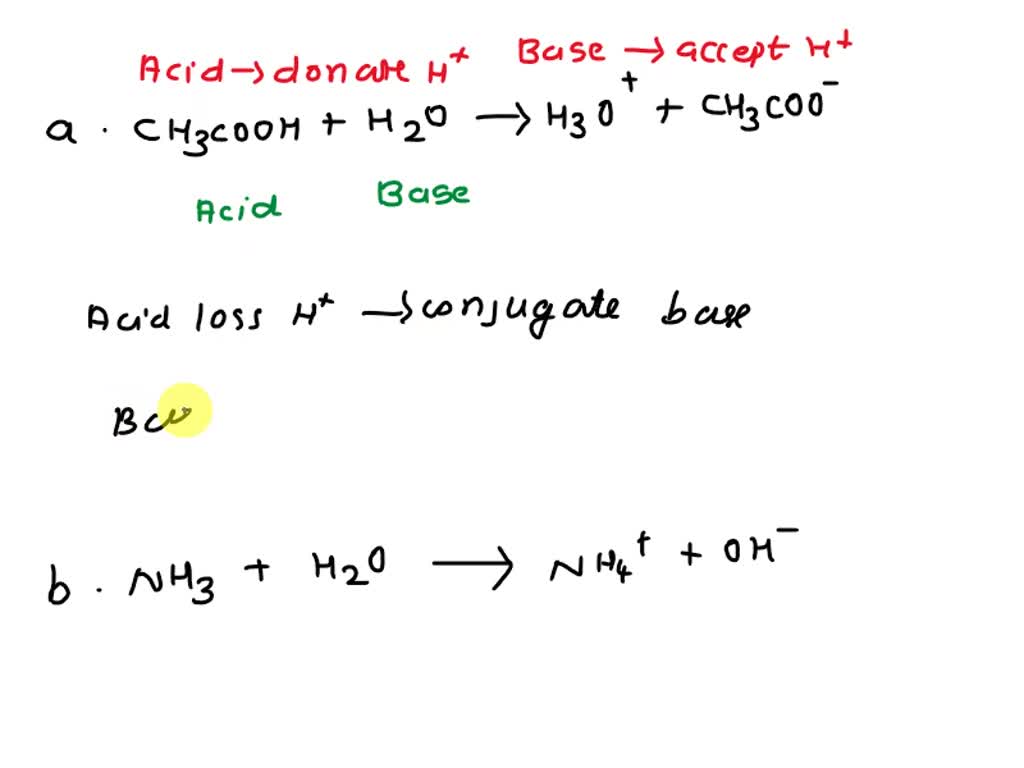 Acid → donate H⁺ Base → accept H⁺
a. CH₃COOH + H₂O → H₃O⁺ + CH₃COO⁻
Acid Base
Acid loss H⁺ → conjugate base
b. NH₃ + H₂O → NH₄⁺ + OH⁻